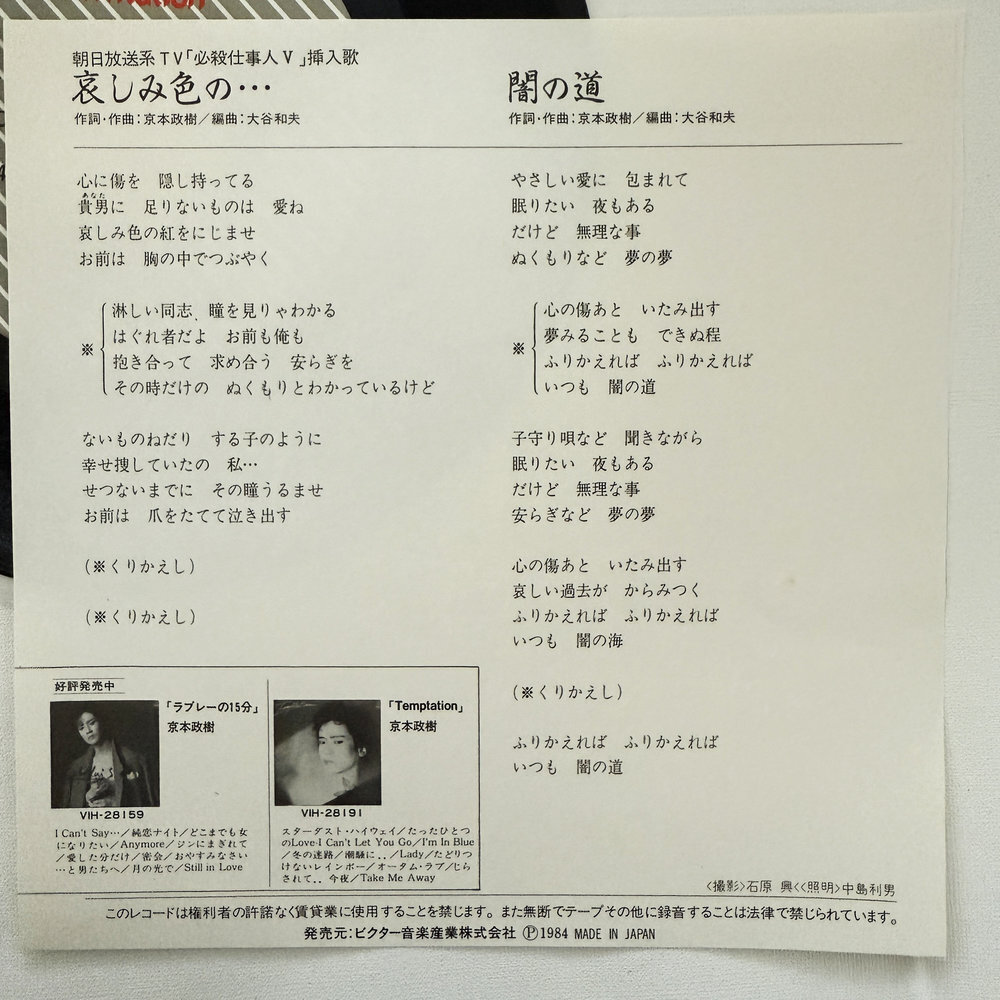 朝日放送系TV「必殺仕事人V」挿入歌
哀しみ色の…
作詞・作曲：京本政樹／編曲：大谷和夫
心に傷を　隠し持ってる
あなた
貴男に　足りないものは　愛ね
哀しみ色の紅をにじませ
お前は　胸の中でつぶやく
※
淋しい同志、瞳を見りゃわかる
はぐれ者だよ　お前も俺も
抱き合って　求め合う　安らぎを
その時だけの　ぬくもりとわかっているけど
ないものねだり　する子のように
幸せ捜していたの　私…
せつないまでに　その瞳うるませ
お前は　爪をたてて泣き出す
（※くりかえし）
（※くりかえし）
闇の道
作詞・作曲：京本政樹／編曲：大谷和夫
やさしい愛に　包まれて
眠りたい　夜もある
だけど　無理な事
ぬくもりなど　夢の夢
※
心の傷あと　いたみ出す
夢みることも　できぬ程
ふりかえれば　ふりかえれば
いつも　闇の道
子守り唄など　聞きながら
眠りたい　夜もある
だけど　無理な事
安らぎなど　夢の夢
心の傷あと　いたみ出す
哀しい過去が　からみつく
ふりかえれば　ふりかえれば
いつも　闇の海
（※くりかえし）
ふりかえれば　ふりかえれば
いつも　闇の道
好評発売中
「ラブレーの15分」
京本政樹
VIH-28159
I Can't Say…／純恋ナイト／どこまでも女
になりたい／Anymore／ジンにまぎれて
／愛した分だけ／密会／おやすみなさい
…と男たちへ／月の光で／Still in Love
「Temptation」
京本政樹
VIH-28191
スターダスト・ハイウェイ／たったひとつ
のLove・I Can't Let You Go／I'm In Blue
／冬の迷路／潮騒に．．／Lady／たどりつ
けないレインボー／オータム・ラブ／じら
されて．．今夜／Take Me Away
〈撮影〉石原 興〈〈照明〉中島利男
このレコードは権利者の許諾なく賃貸業に使用することを禁じます。また無断でテープその他に録音することは法律で禁じられています。
発売元：ビクター音楽産業株式会社 Ⓟ1984 MADE IN JAPAN